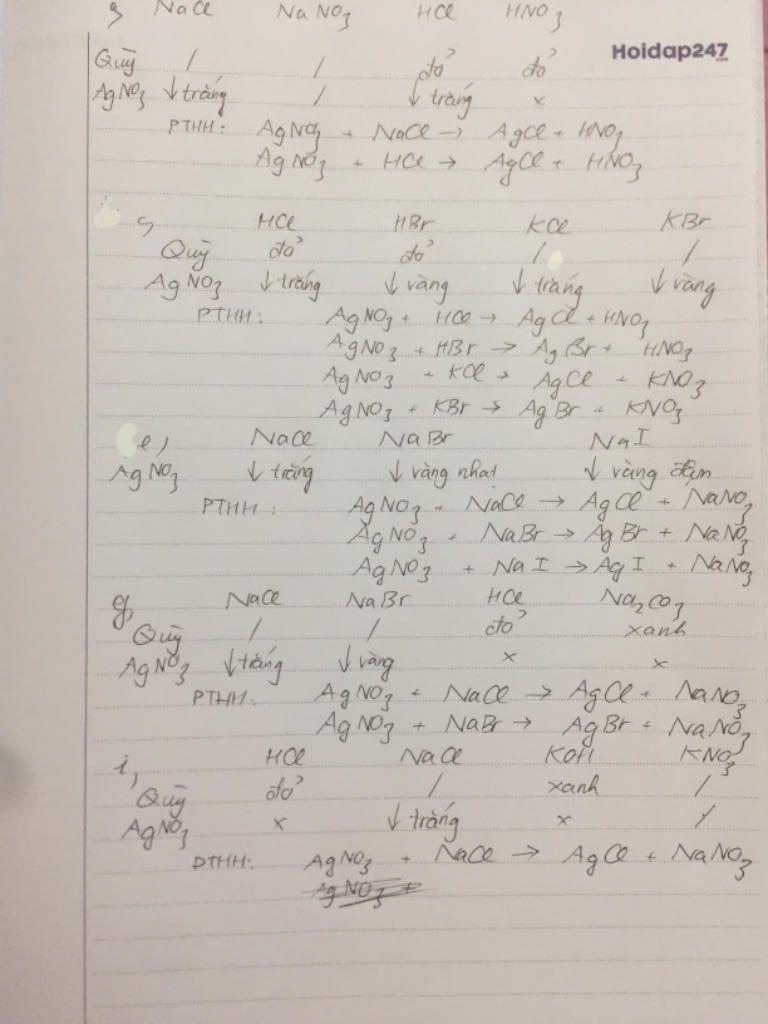 NaCl NaNO3 HCl HNO3
Hoidap247
Quỳ / / đỏ đỏ
AgNO3 ↓ trắng / ↓ trắng x
PTHH: AgNO3 + NaCl → AgCl + HNO3
AgNO3 + HCl → AgCl + HNO3
HCl HBr KCl KBr
Quỳ đỏ đỏ / /
AgNO3 ↓ trắng ↓ vàng ↓ trắng ↓ vàng
PTHH: AgNO3 + HCl → AgCl + HNO3
AgNO3 + HBr → AgBr + HNO3
AgNO3 + KCl → AgCl + KNO3
AgNO3 + KBr → AgBr + KNO3
e, NaCl NaBr NaI
AgNO3 ↓ trắng ↓ vàng nhạt ↓ vàng đậm
PTHH: AgNO3 + NaCl → AgCl + NaNO3
AgNO3 + NaBr → AgBr + NaNO3
AgNO3 + NaI → AgI + NaNO3
g, NaCl NaBr HCl Na2CO3
Quỳ / / đỏ xanh
AgNO3 ↓ trắng ↓ vàng x x
PTHH: AgNO3 + NaCl → AgCl + NaNO3
AgNO3 + NaBr → AgBr + NaNO3
i, HCl NaCl KOH KNO3
Quỳ đỏ / xanh /
AgNO3 x ↓ trắng x /
PTHH: AgNO3 + NaCl → AgCl + NaNO3
AgNO3 +